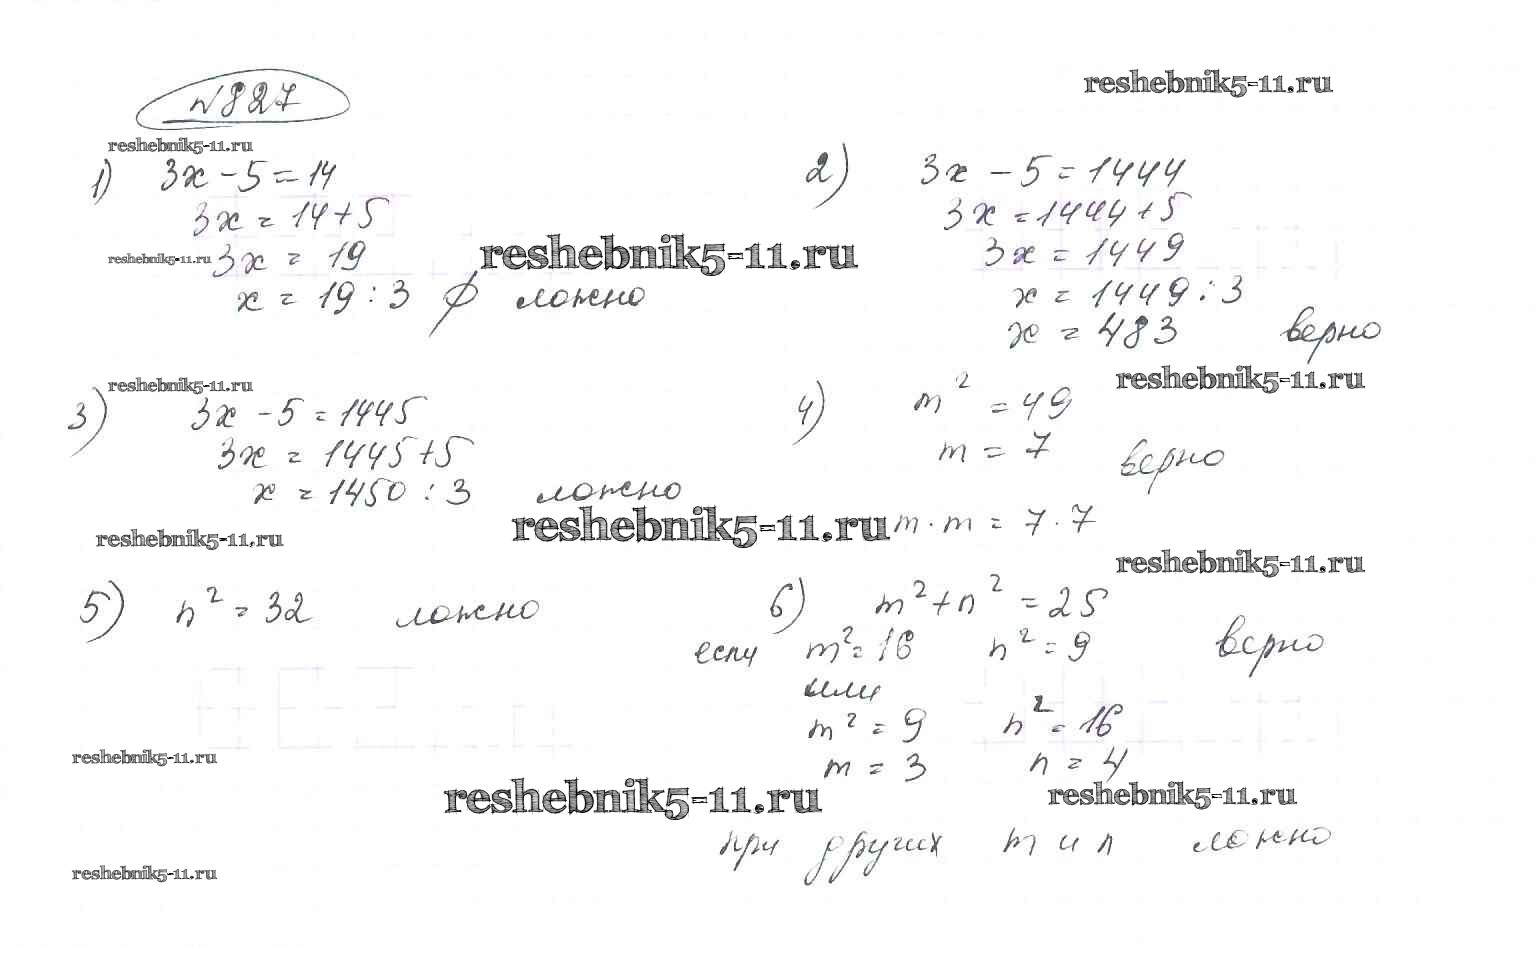 №827
reshebnik5-11.ru
reshebnik5-11.ru
1) 3x - 5 = 14
3x = 14 + 5
reshebnik5-11.ru 3x = 19
x = 19 : 3 ∅ ложно
reshebnik5-11.ru
2) 3x - 5 = 1444
3x = 1444 + 5
3x = 1449
x = 1449 : 3
x = 483 верно
reshebnik5-11.ru
reshebnik5-11.ru
3) 3x - 5 = 1445
3x = 1445 + 5
x = 1450 : 3 ложно
4) m² = 49
m = 7 верно
reshebnik5-11.ru m · m = 7 · 7
reshebnik5-11.ru
reshebnik5-11.ru
5) n² = 32 ложно
6) m² + n² = 25
если m² = 16 n² = 9 верно
или
m² = 9 n² = 16
m = 3 n = 4
reshebnik5-11.ru
reshebnik5-11.ru
reshebnik5-11.ru
при других m и n ложно
reshebnik5-11.ru